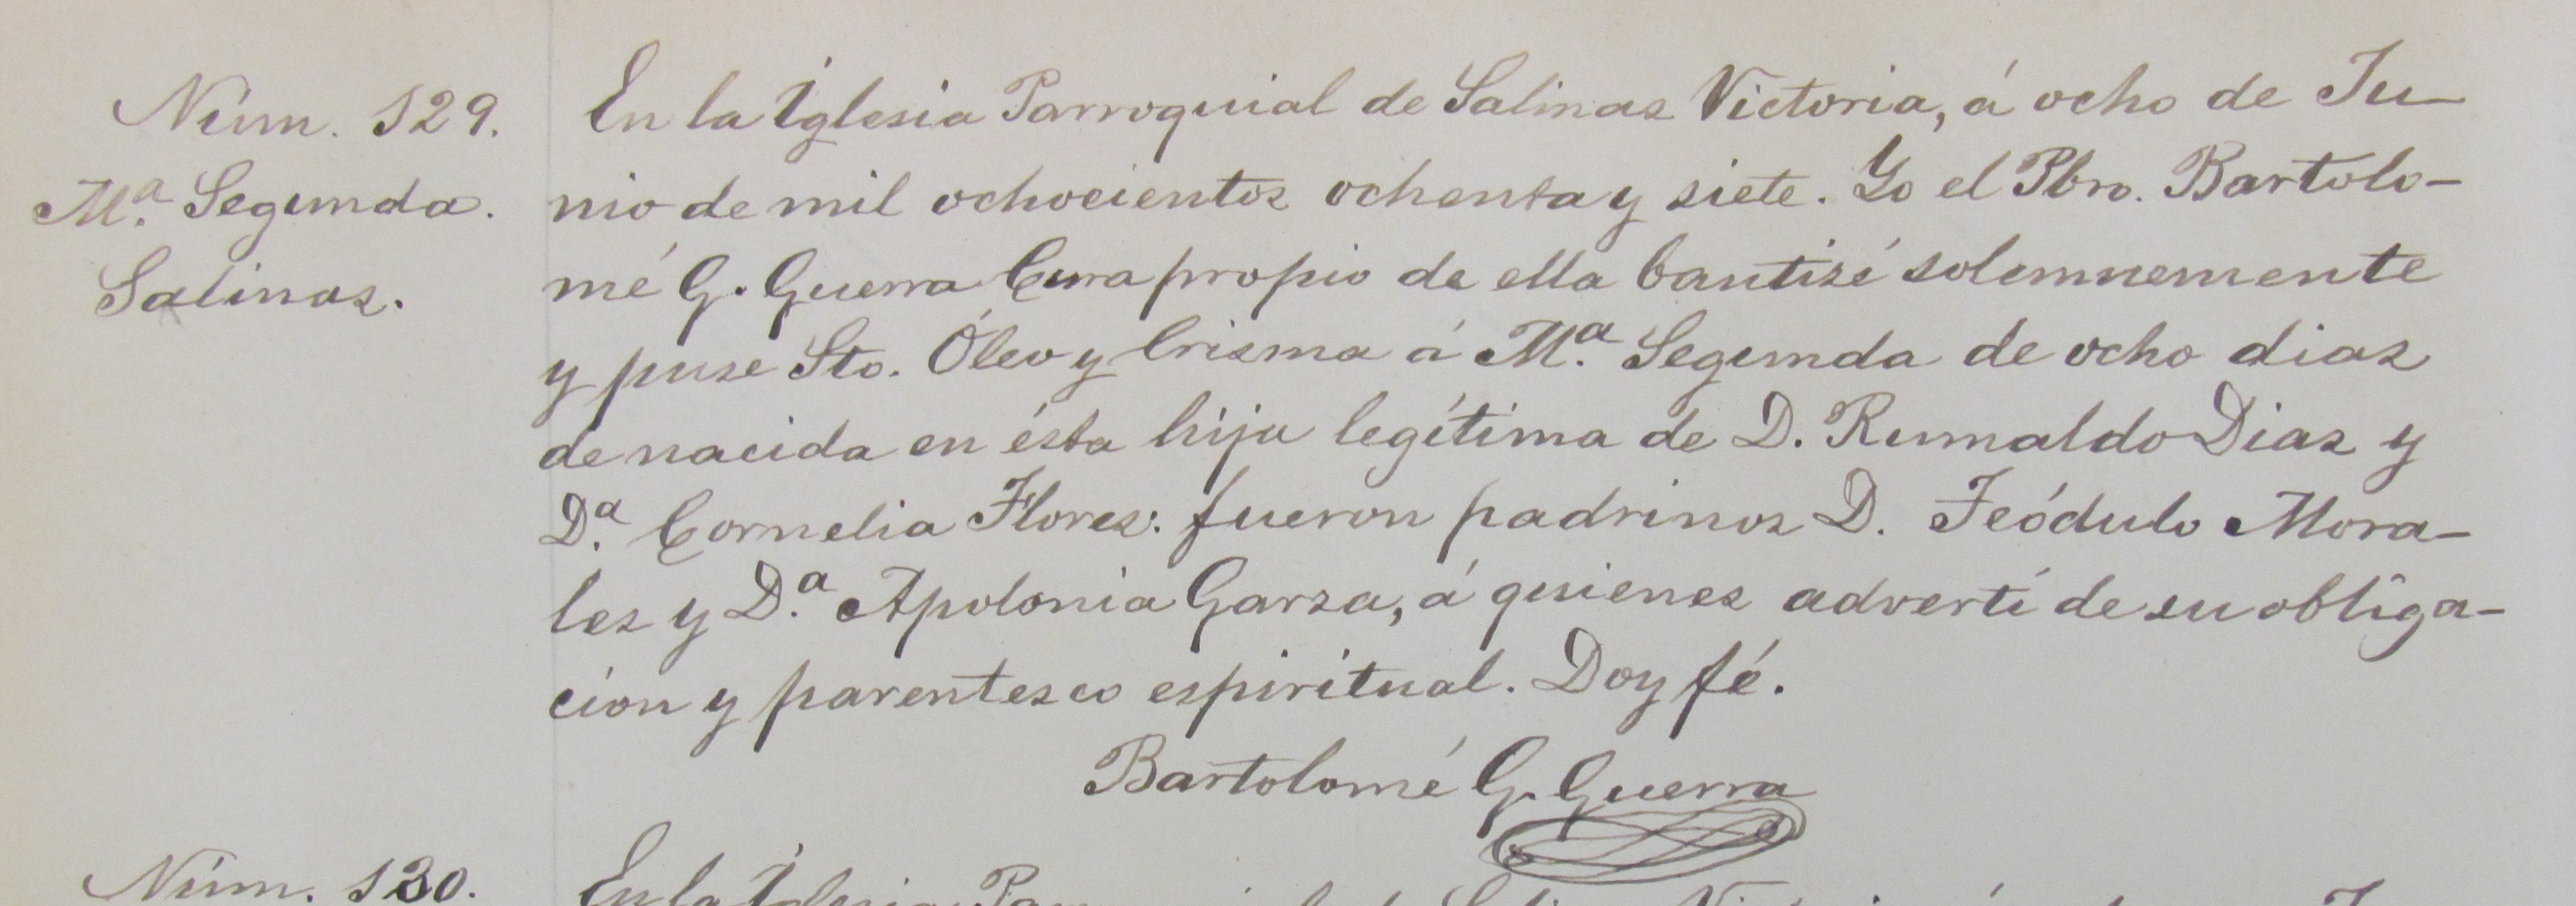 Núm. 129.
Mª. Segunda.
Salinas.
En la Iglesia Parroquial de Salinas Victoria, á ocho de Ju-
nio de mil ochocientos ochenta y siete. Yo el Pbro. Bartolo-
mé G. Guerra Cura propio de ella bautisé solemnemente
y puse Sto. Óleo y Crisma á Mª. Segunda de ocho dias
de nacida en ésta hija legítima de D. Rumaldo Dias y
Dª. Cornelia Flores: fueron padrinos D. Teódulo Mora-
les y Dª. Apolonia Garza, á quienes advertí de su obliga-
cion y parentesco espiritual. Doy fé.
Bartolomé G. Guerra
Núm. 130.
En la Iglesia Parroquial de Salinas Victoria, á